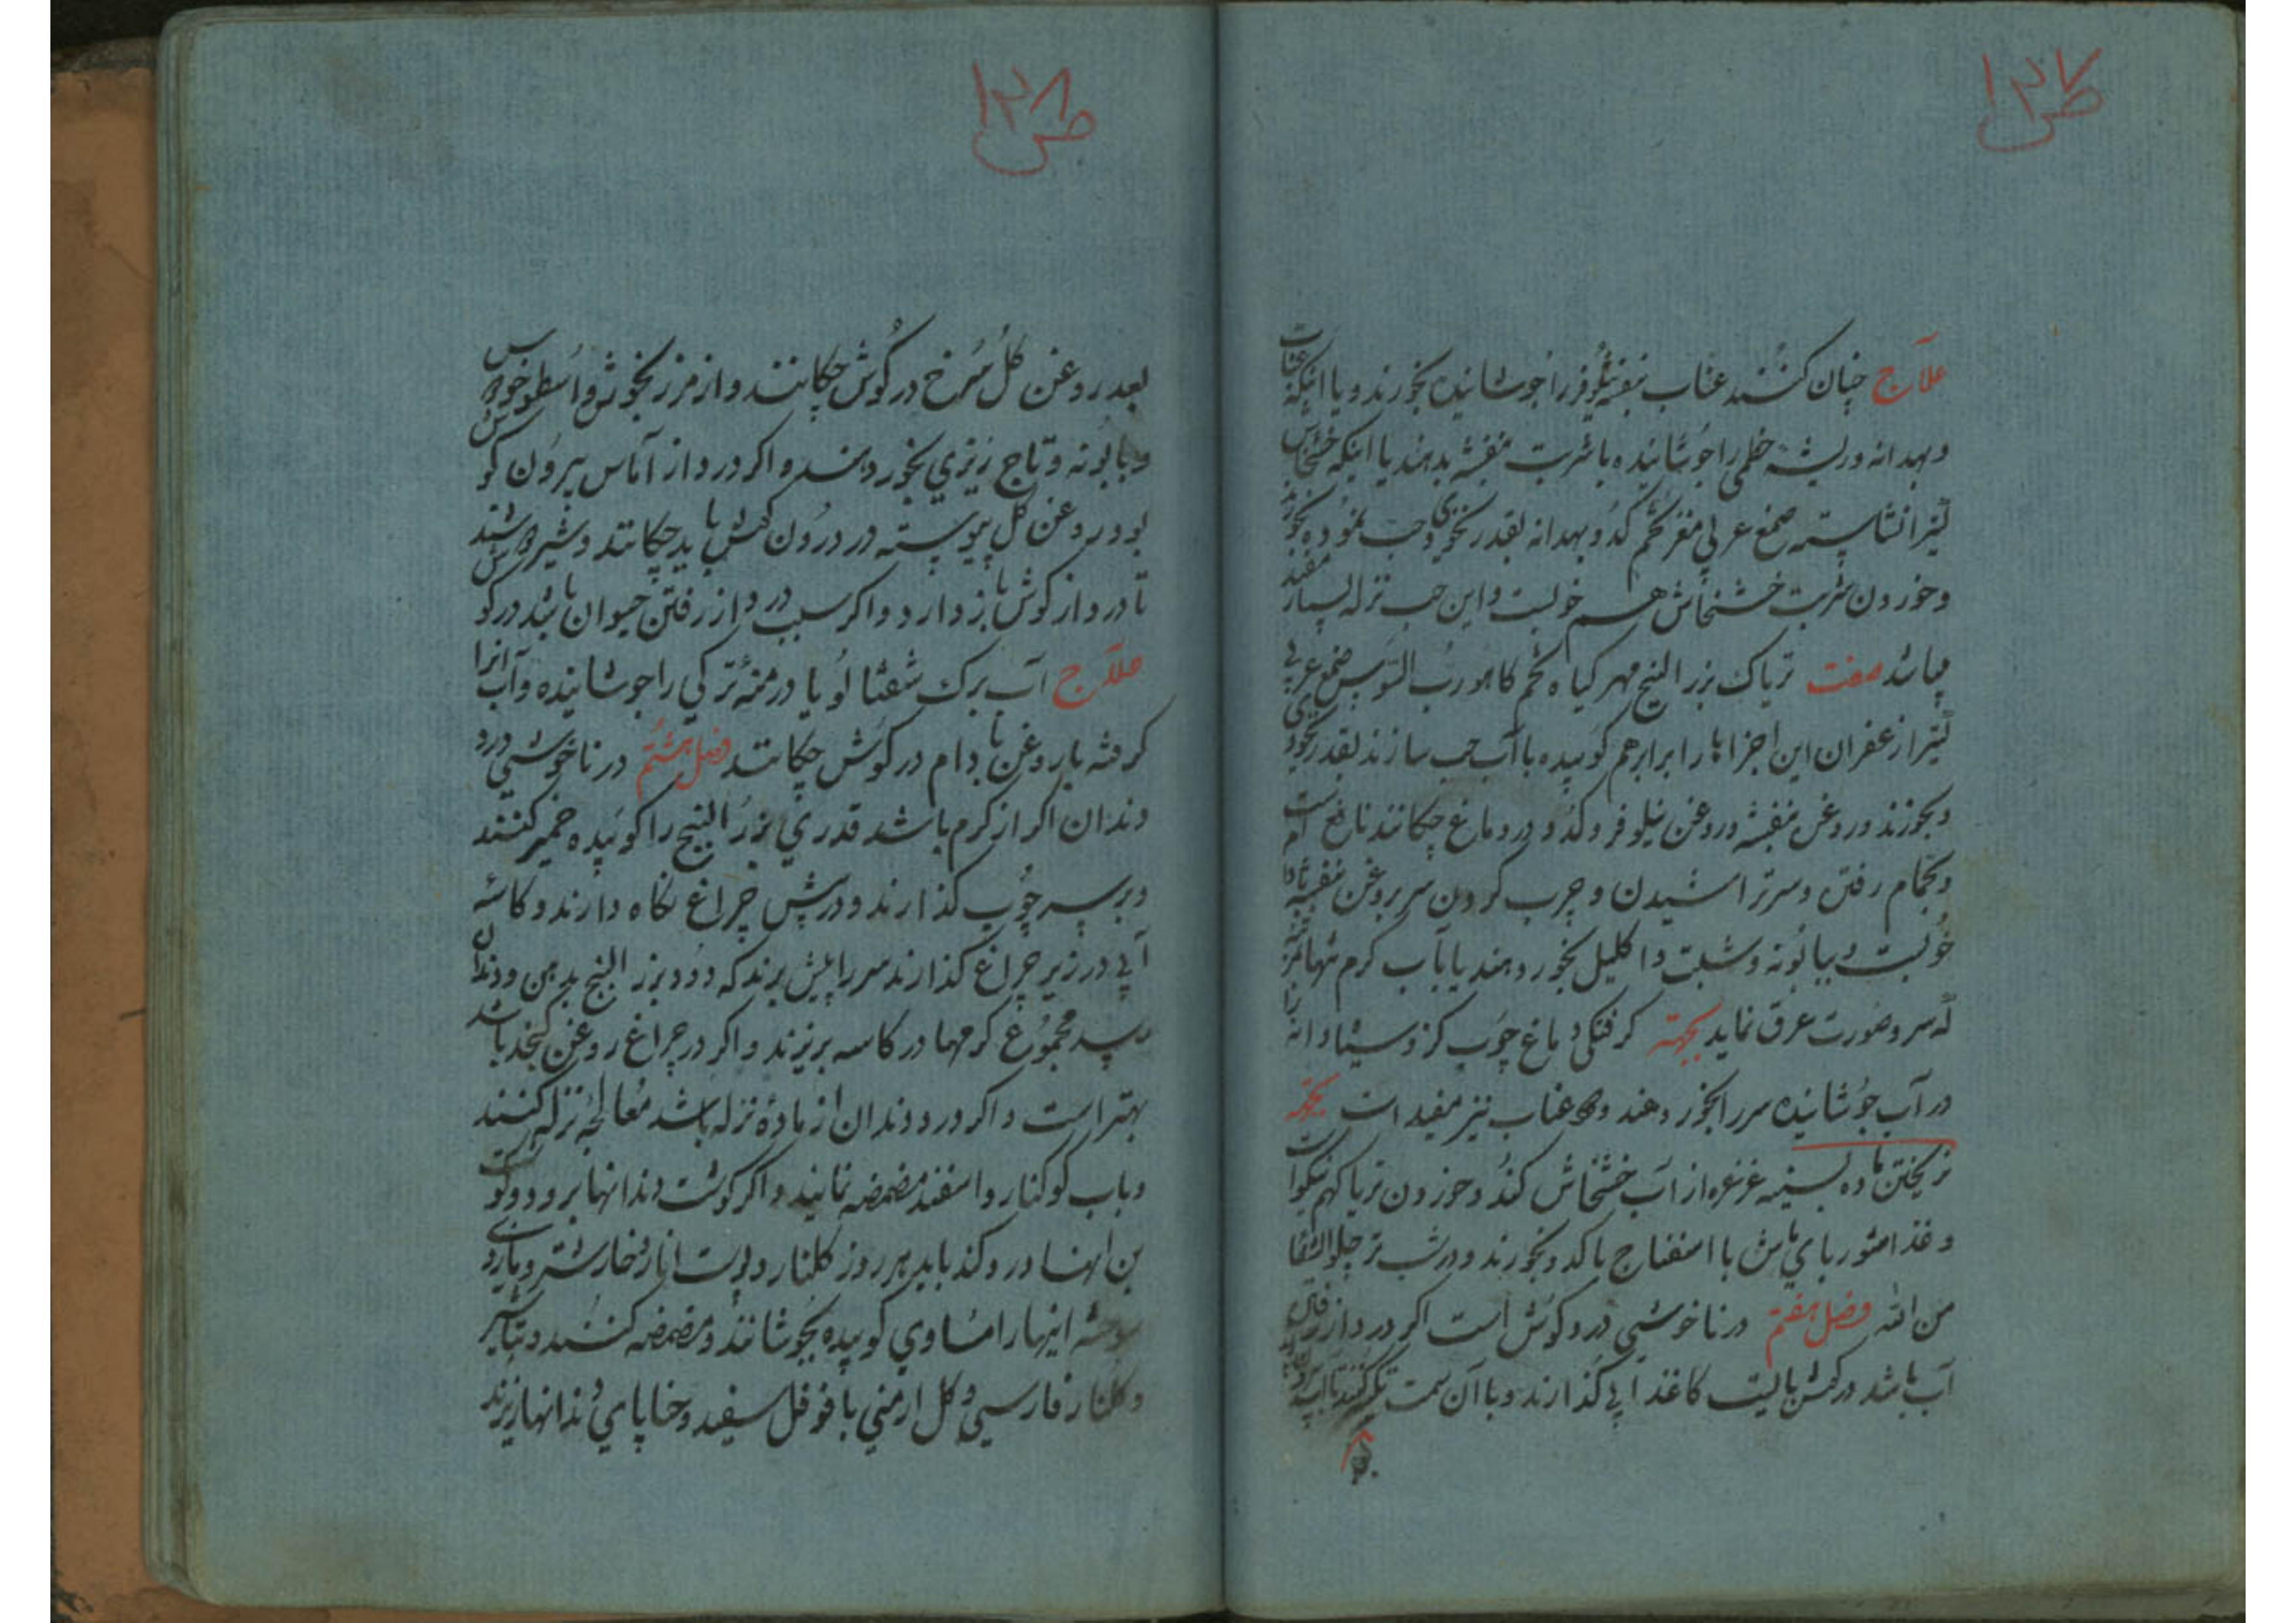 ص ۱۳۷
علاج چنان کنند عناب بنفشه نیلوفر را جوشانیده بخورند و یا اینکه عناب
و بهدانه و ریشه خطمی را جوشانیده با شربت بنفشه بدهند یا اینکه خشخاش
کتیرا نشاسته صمغ عربی مغز تخم کدو بهدانه بقدر نخودی حب نموده بخورند
و خوردن شربت خشخاش هم خوبست و این حب نزله بسیار مفید
میباشد صفت تریاک بزر البنج مهر کیاه تخم کاهو رب السوس صمغ عربی
کتیرا زعفران این اجزاها را برابر هم کوبیده با آب حب سازند بقدر نخودی
و بخورند و روغن بنفشه و روغن نیلوفر و کدو در دماغ چکانند نافع است
و بحمام رفتن و سر تراشیدن و چرب کردن سر بروغن بنفشه بادام
خوبست و ببابونه و شبت و اکلیل بخور دهند یا بآب کرم تنها
که سر و صورت عرق نماید بجهته کرفتکی دماغ چوب کز و سیاه دانه را
در آب جوشانیده سر را بخور دهند و عناب نیز مفید است بجهته
نریختن ماده بسینه غرغره از آب خشخاش کند و خوردن تریاک هم نیکو است
و غذا شوربای ماش با اسفناج یا کدو بخورند و در شب تر چلو الشفا
من الله فصل هفتم در ناخوشی درد کوش است اکر درد از رفتن
آب باشد در کوش بالیت کاغذ آبی کذارند و با آن سمت تکیه کنند تا آب بیرون
ص ۱۳۸
بعد روغن کل سرخ در کوش چکانند و از مرزنجوش و اسطوخودوس
و بابونه و تاج ریزی بخور دهند و اکر درد از آماس بیرون کوش
بود روغن کل پیوسته در درون کوش باید چکانند و شیر
تا درد از کوش باز دارد و اکر سبب درد از رفتن حیوان باشد در کوش
علاج آب برک شفتالو یا درمنه ترکی را جوشانیده و آب آنرا
کرفته با روغن بادام در کوش چکانند فصل هشتم در ناخوشی درد
دندان اکر از کرم باشد قدری بزر البنج را کوبیده خمیر کنند
و بر سر چوب کذارند و در پیش چراغ نکاه دارند و کاسه
آبی در زیر چراغ کذارند سر را پیش برند که دود بزر البنج بدهن و دندان
رسد مجموع کرمها در کاسه بریزند و اکر در چراغ روغن کنجد باشد
بهتر است و اکر درد دندان از ماده نزله باشد معالجه نزله کنند
و باب کوکنار و اسفند مضمضه نمایند و اکر کوشت دندانها برود و کوشت
بن آنها درد کند باید هر روز کلنار و پوست انار و خارشتر و مازوی
سوخته اینها را مساوی کوبیده بجوشانند و مضمضه کنند و تباشیر
و کلنار فارسی و کل ارمنی با فوفل سفید و حنا پای دندانها ریزند